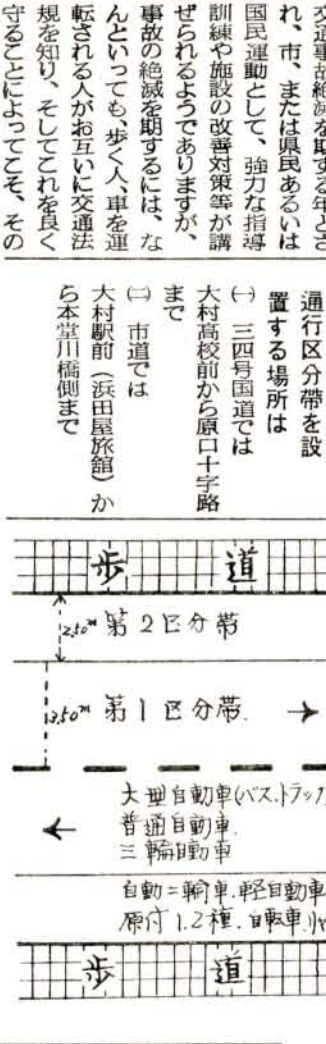 交通事故絶滅を期する年とさ
れ、市、または県民あるいは
国民運動として、強力な指導
訓練や施設の改善対策等が講
ぜられるようでありますが、
事故の絶滅を期するには、な
んといっても、歩く人、車を運
転される人がお互いに交通法
規を知り、そしてこれを良く
守ることによってこそ、その
通行区分帯を設
置する場所は
㈠ 三四号国道では
大村高校前から原口十字路
まで
㈡ 市道では
大村駅前（浜田屋旅館）か
ら本堂川橋側まで
歩道
2.50m 第2区分帯
3.50m 第1区分帯 →
大型自動車(バス.トラック
← 普通自動車
三輪自動車
自動二輪車.軽自動車
原付1.2種.自転車.リヤ
歩道